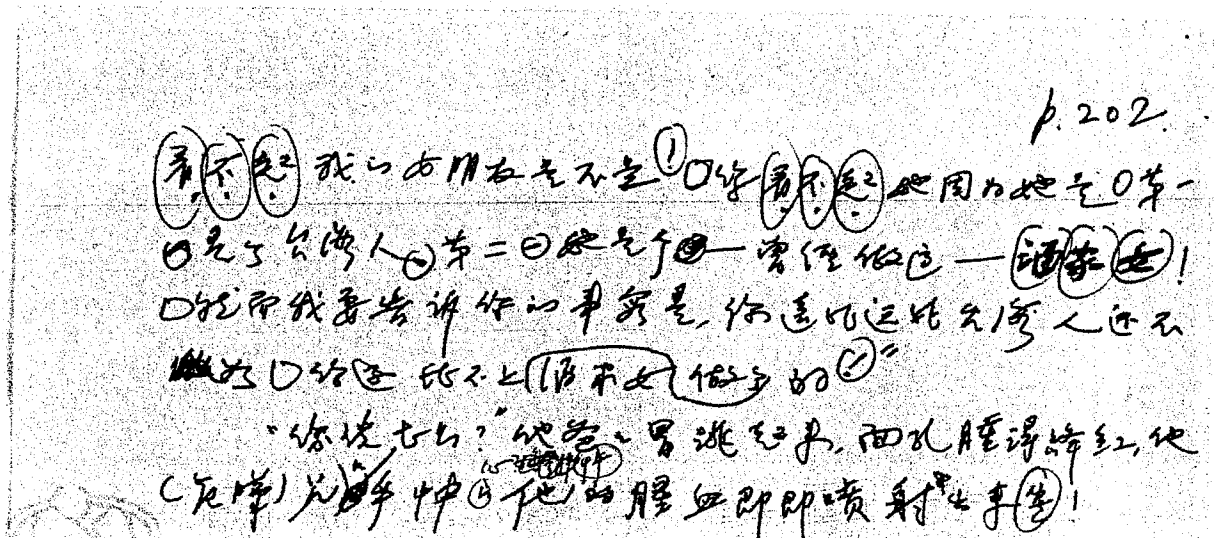 p.202.
看不起我的女朋友是不是!你看不起她因為她是第一
是个台湾人第二她是个——曾經做过——酒家女!
然而我要告訴你的事实是,你远比远比台湾人还不
如 你还比不上酒家女做的"
"你说什么?"他爸冒跳起来,面孔腫得絳紅,他
他的腥血即即喷射出来!